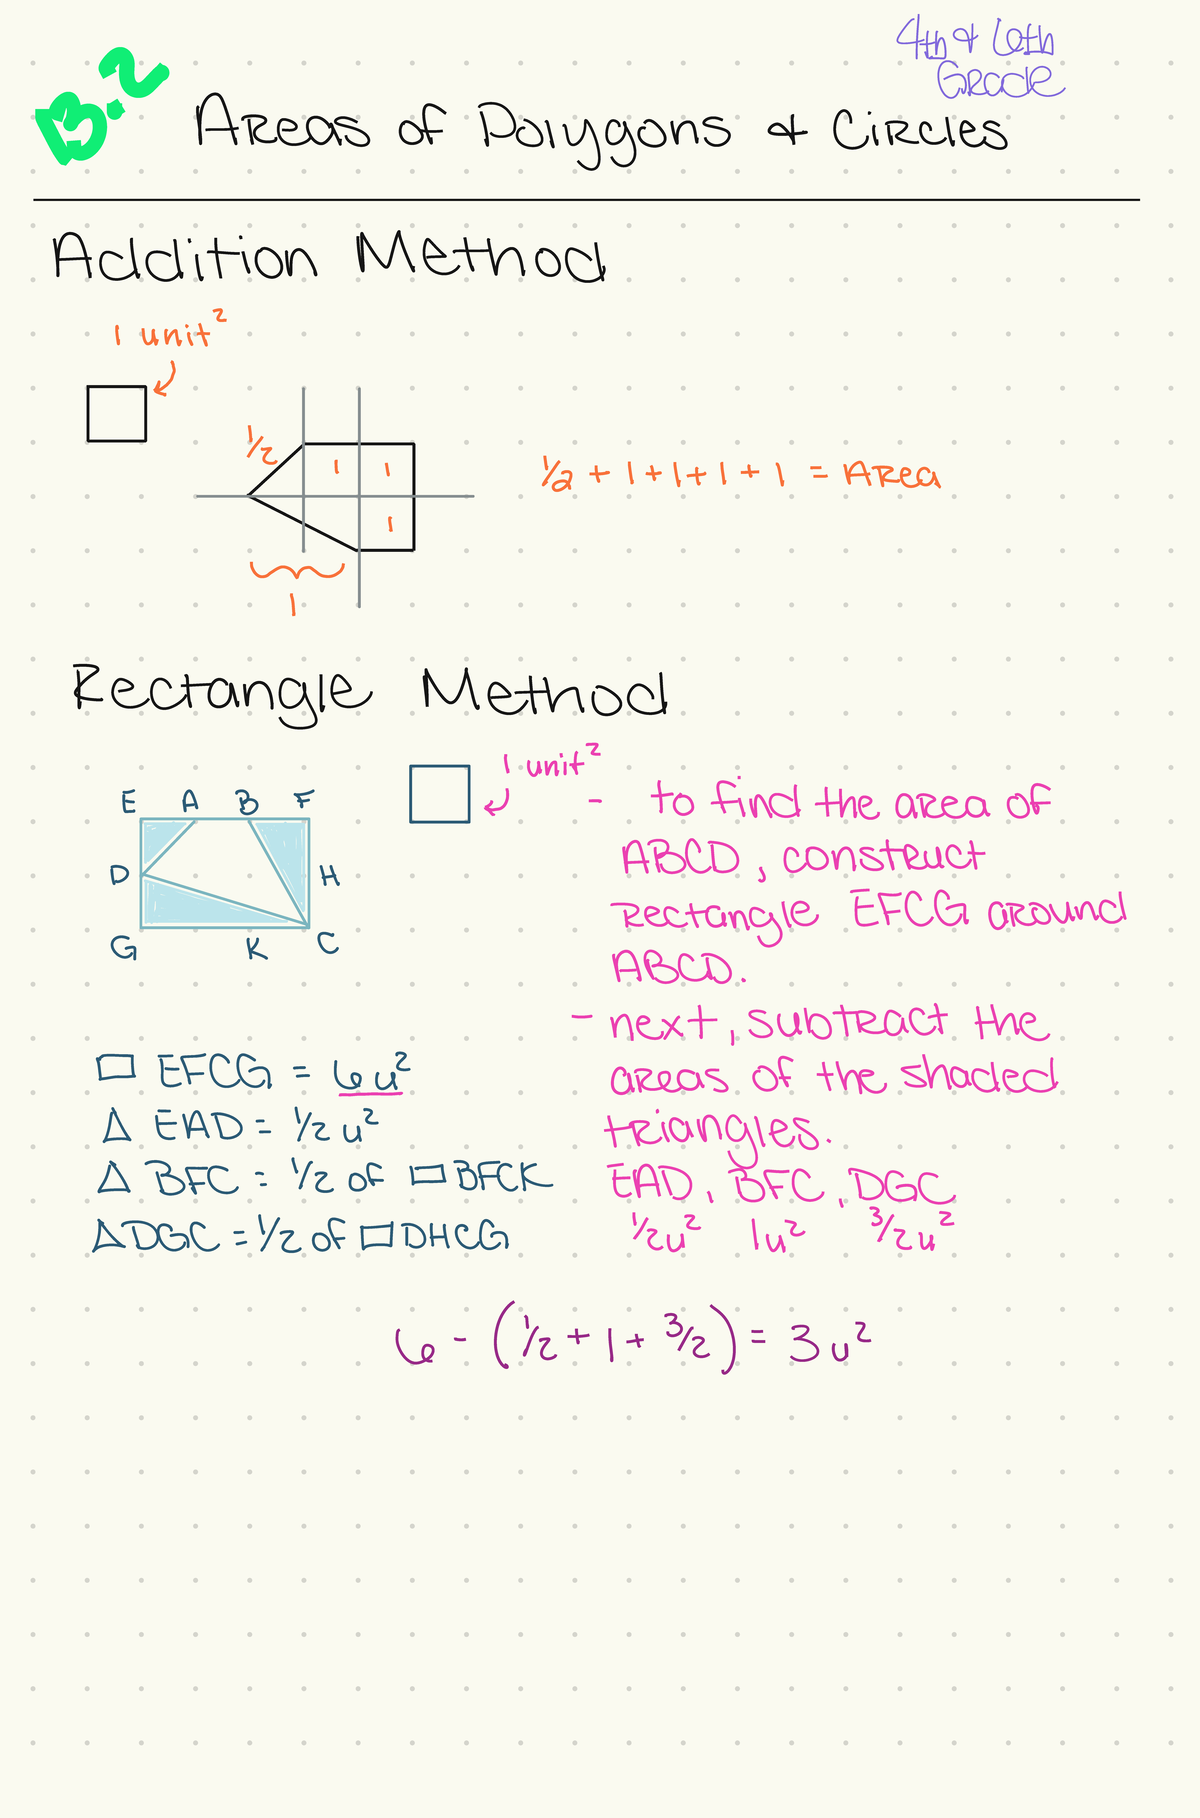 4th & 6th
Grade
B.2 Areas of Polygons & Circles
Addition Method
1 unit²
1/2
1 1
1
1
1/2 + 1 + 1 + 1 + 1 = Area
Rectangle Method
1 unit²
E A B F
D H
G K C
- to find the area of
ABCD, construct
rectangle EFCG around
ABCD.
- next, subtract the
areas of the shaded
triangles.
EAD, BFC, DGC
1/2u² 1u² 3/2u²
▭ EFCG = 6u²
△ EAD = 1/2 u²
△ BFC = 1/2 of ▭ BFCK
△ DGC = 1/2 of ▭ DHCG
6 - (1/2 + 1 + 3/2) = 3u²